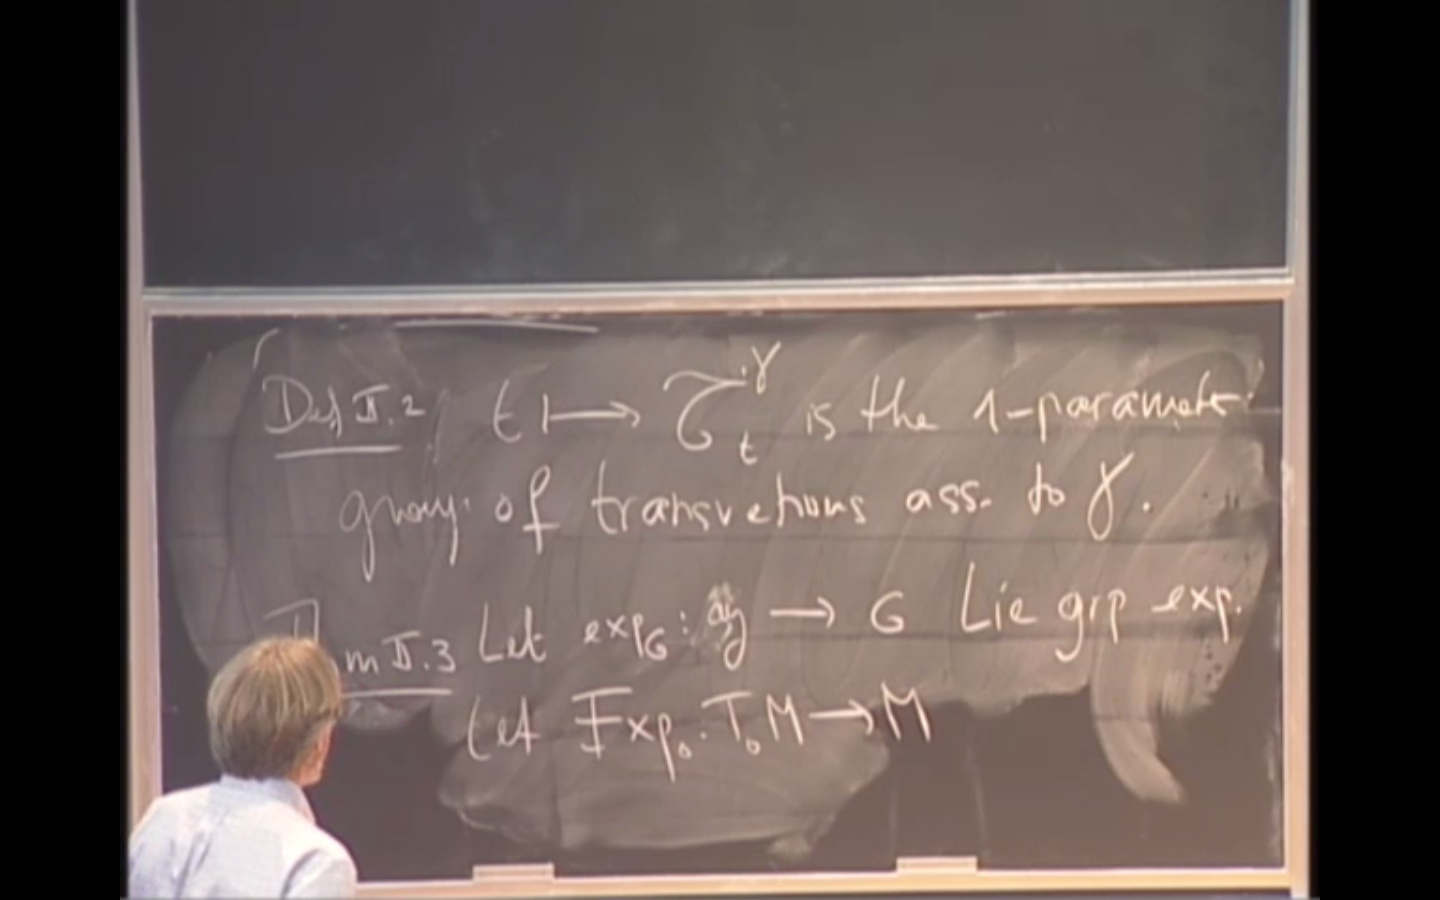 Def II.2 t ↦ τ_t^γ is the 1-parameter
group of transvections ass. to γ.
Thm II.3 Let exp_G : 𝔤 → G Lie grp exp.
Let Exp_o : T_o M → M